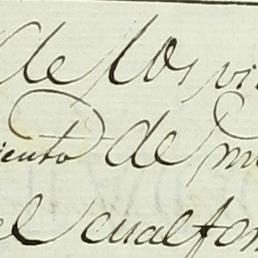 de los vi
iento de m
el cual for